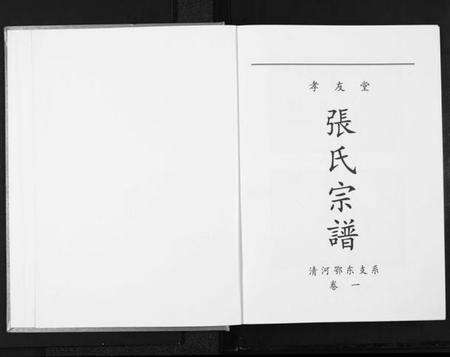 孝友堂
張氏宗譜
清河鄂东支系
卷一